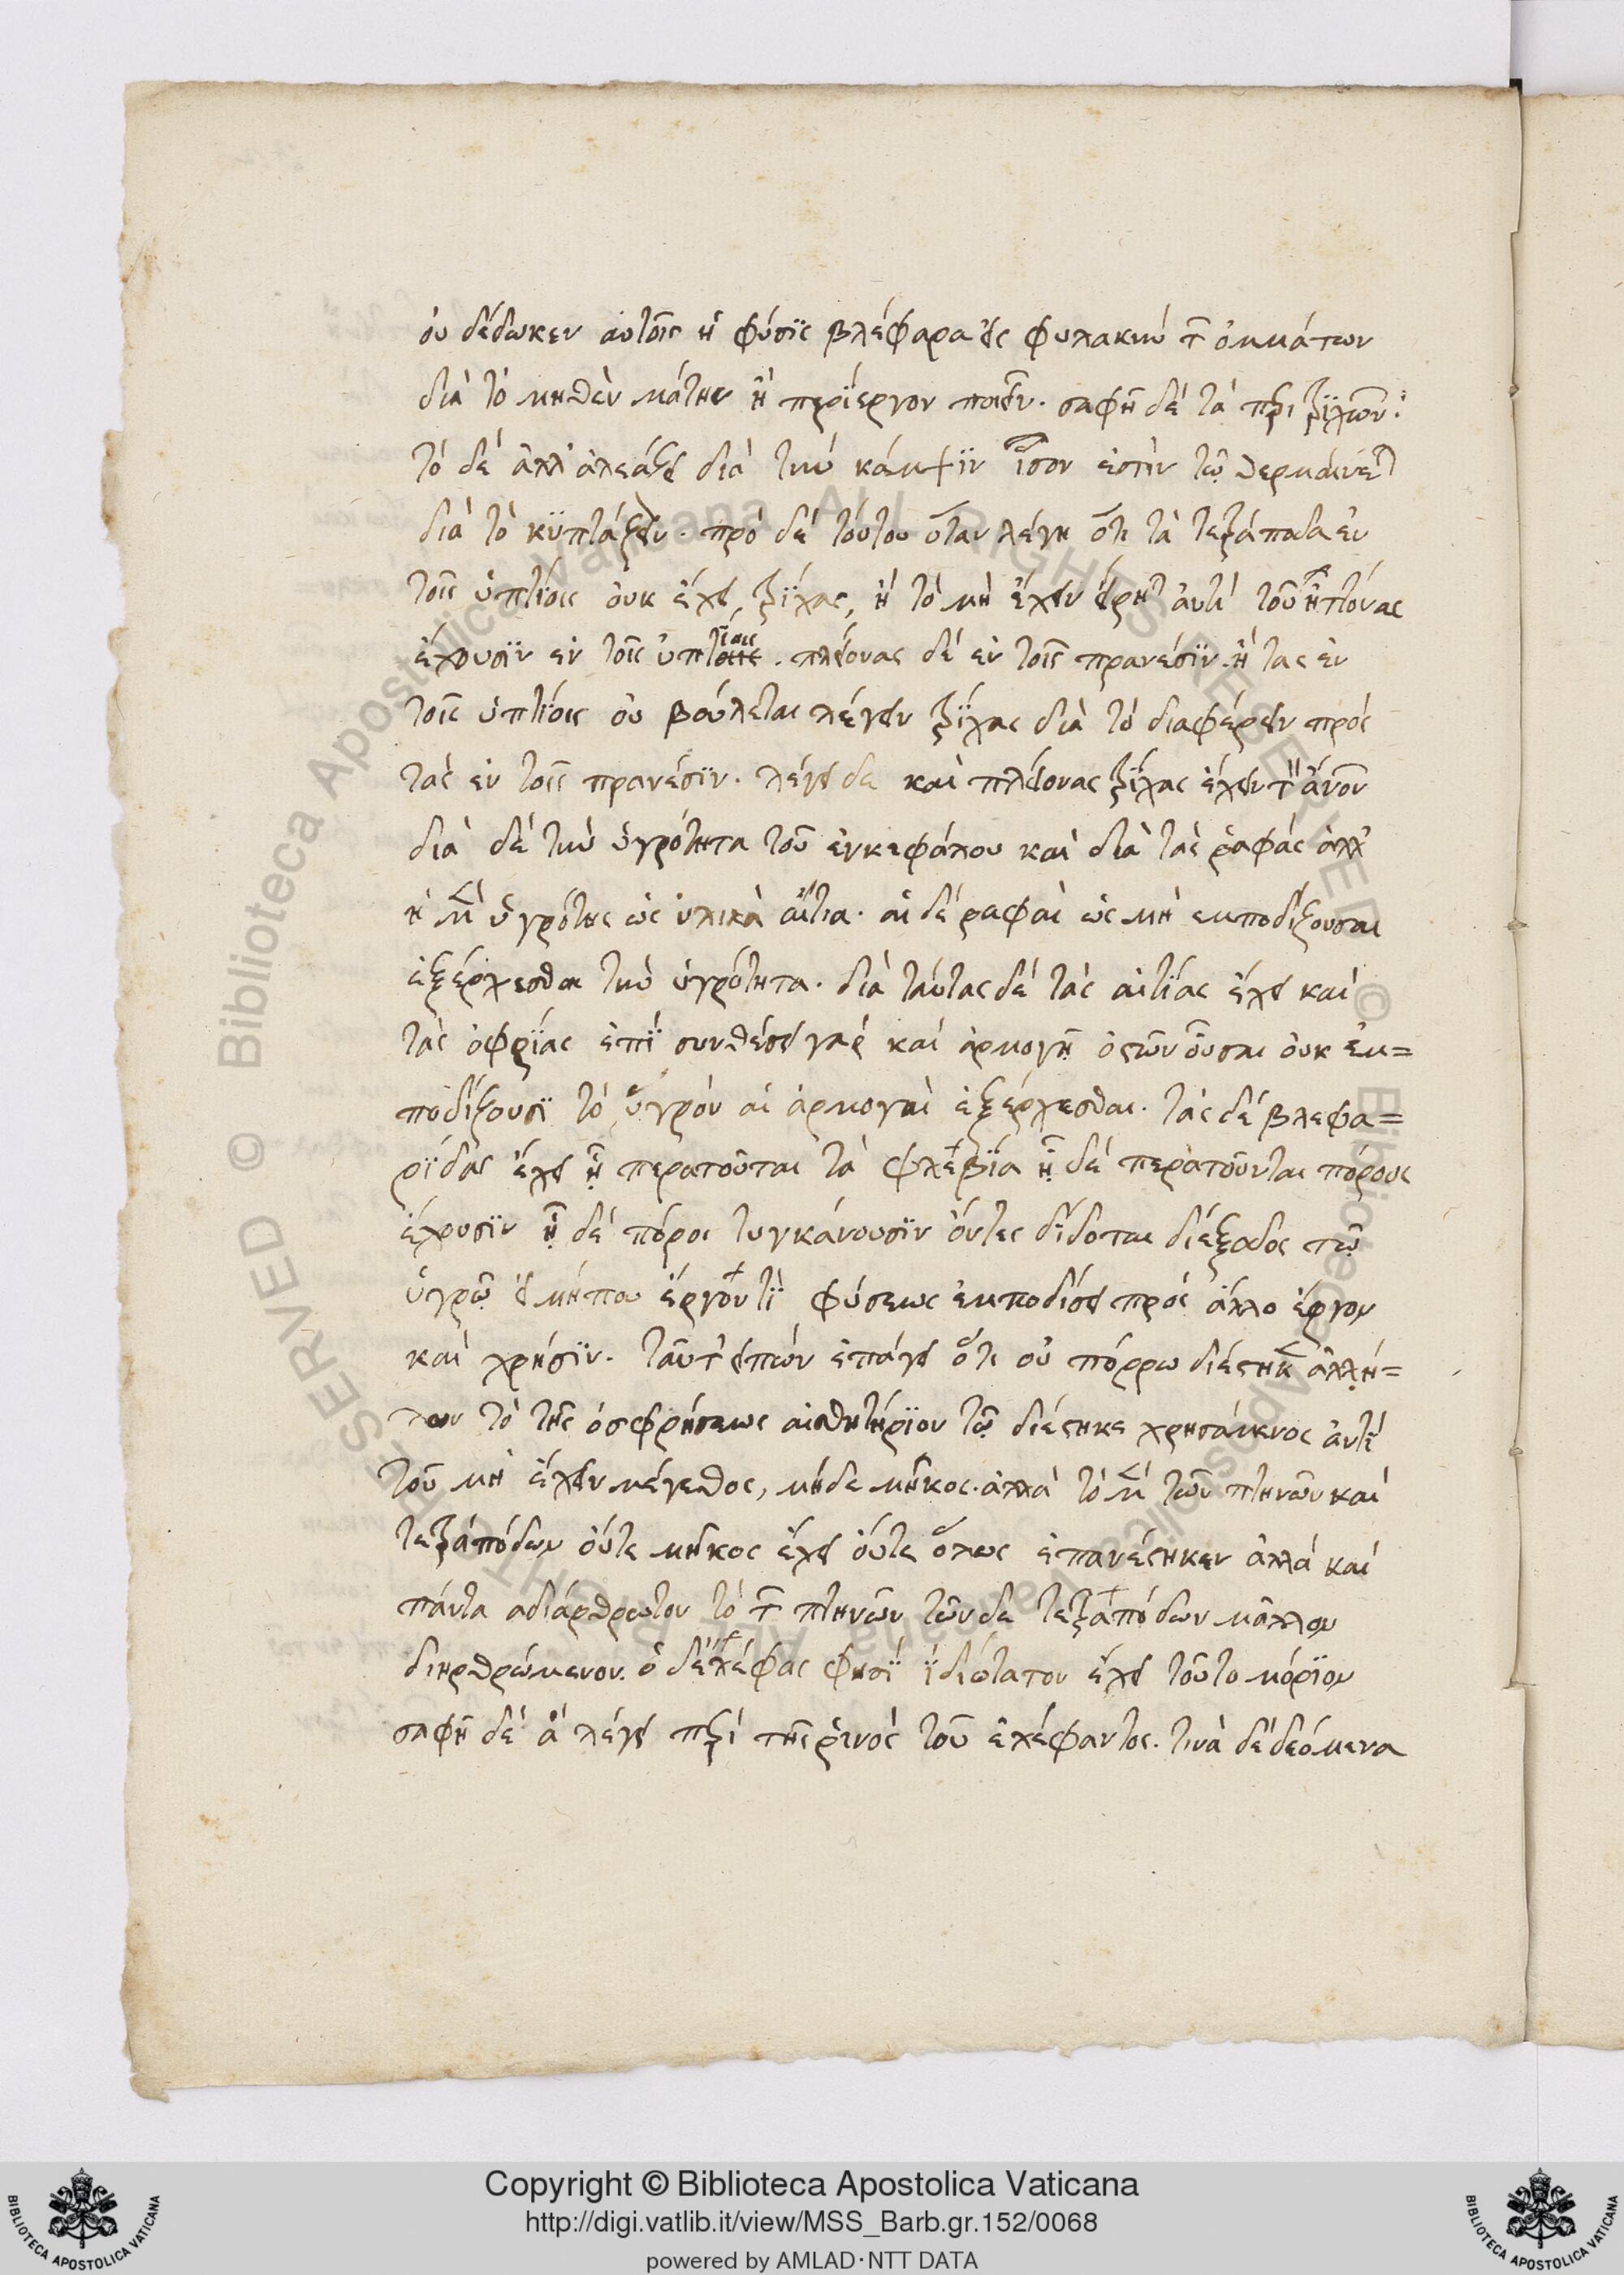 οὐ δέδωκεν αὐτοῖς ἡ φύσϊς βλέφαρα εἰς φυλακὴν τ ὀμμάτων
διὰ τὸ μηθὲν μάτην ἢ περίεργον ποιεῖν. σαφῆ δὲ τὰ περι τριχῶν:
τὸ δὲ ἀλλ' ἀλεάζει διὰ τὴν κάμψϊν ἴσον ἐστὶν τῷ θερμαίνει
διὰ τὸ κϋπτάζειν. πρὸ δὲ τούτου ὅταν λέγη ὅτι τὰ τετράποδα ἐν
τοῖς ὑπτίοις οὐκ ἔχει τρίχας, ἢ τὸ μὴ ἔχειν εἴρητ ἀντὶ τοῦ ἥττονας
ἔχουσϊν ἐν τοῖς ὑπτίοις. πλείονας δὲ ἐν τοῖς πρανέσϊν. ἢ τας ἐν
τοῖς ὑπτίοις οὐ βούλεται λέγειν τρίχας διὰ τὸ διαφέρειν πρὸς
τὰς ἐν τοῖς πρανέσϊν. λέγει δε καὶ πλείονας τρίχας ἔχειν τ ἄνον
διὰ δὲ τὴν ὑγρότητα τοῦ ἐνκεφάλου καὶ διὰ τὰς ῥαφάς ἀλλ'
ἡ μ ὑγρότης ὡς ὑλικὰ αἴτια. αἱ δὲ ραφαὶ ὡς μὴ εμποδίζουσαι
ἐξέρχεσθαι τὴν ὑγρότητα. διὰ ταύτας δὲ τὰς αἰτίας ἔχει καὶ
τὰς ὀφρύας ἐπῒ συνθέσει γὰρ καὶ ἁρμογῇ ὀστῶν οὖσαι οὐκ ἐμ=
ποδίζουσϊ τὸ ὑγρὸν αἱ ἁρμογαὶ ἐξέρχεσθαι. τὰς δὲ βλεφα=
ρίδας ἔχει ᾗ περατοῦται τὰ φλεβία ᾗ δὲ περατοῦνται πόρους
ἔχουσϊν ᾗ δὲ πόροι τυγκάνουσϊν ὄντες δίδοται διέξοδος τῷ
ὑγρῷ εἰ μήπου ἔργον τϊ φύσεως ἐμποδίσει πρὸς ἄλλο ἔργον
καὶ χρῆσϊν. ταῦτ' εἰπὼν ἐπάγει ὅτι οὐ πόρρω διέστηκ ἀλλή=
λων τὸ τῆς ὀσφρήσεως αἰσθητήριον τῷ διέστηκε χρησάμενος ἀντὶ
τοῦ μὴ ἔχειν μέγεθος, μήδε μῆκος. ἀλλὰ τὸ μ τῶν πτηνῶν καὶ
τετραπόδων οὔτε μῆκος ἔχει οὔτε ὅλως ἐπανέστηκεν ἀλλὰ καὶ
πάντα αδιάρθρωτον τὸ τ πτηνῶν τῶν δὲ τετραπόδων μᾶλλον
διηρθρώμενον. ὁ δὲ ἐλέφας φησῒ ἰδιώτατον ἔχει τοῦτο μόριον
σαφῆ δὲ ἃ λέγει περὶ τῆς ῥινὸς τοῦ ἐλέφαντος. τινὰ δὲ δεόμενα
Copyright © Biblioteca Apostolica Vaticana
http://digi.vatlib.it/view/MSS_Barb.gr.152/0068
powered by AMLAD·NTT DATA